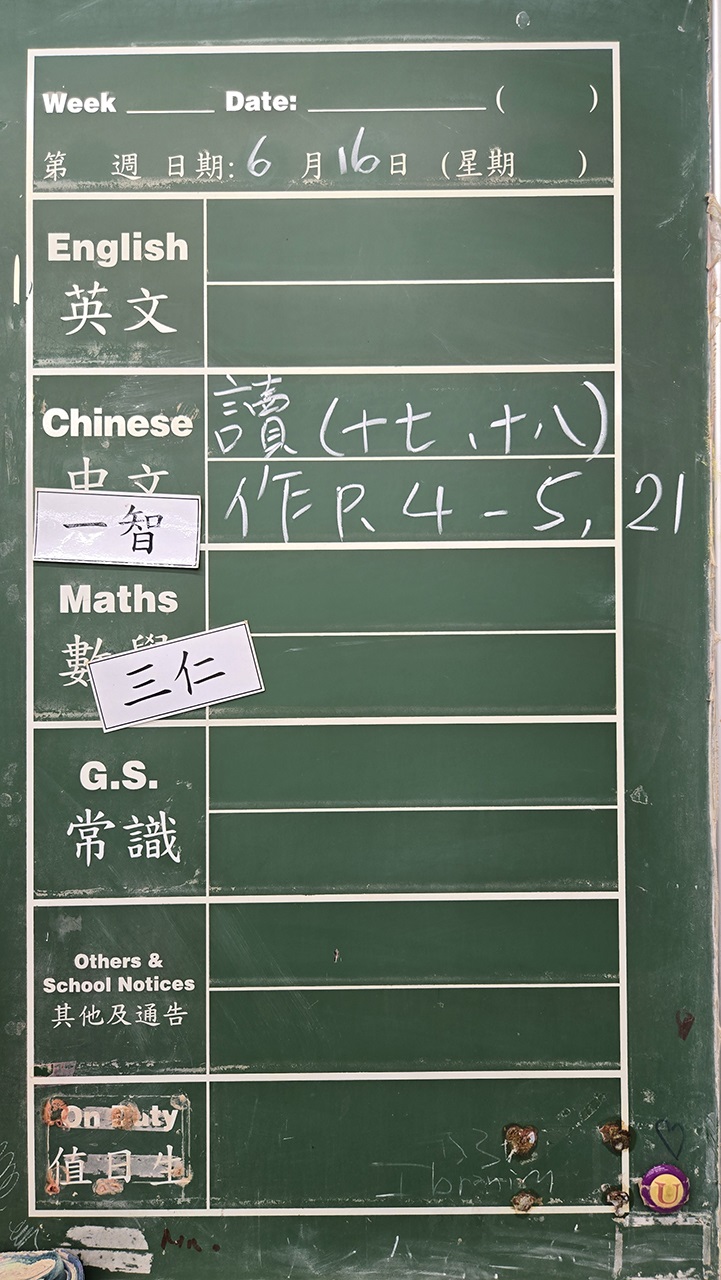 Week ______ Date: ____________ (     )
第 週 日期: 6 月 16 日 (星期     )
English
英文
Chinese 讀 (十七、十八)
中文 作 P. 4 - 5, 21
一智
Maths
數學
三仁
G.S.
常識
Others &
School Notices
其他及通告
On Duty
值日生
U